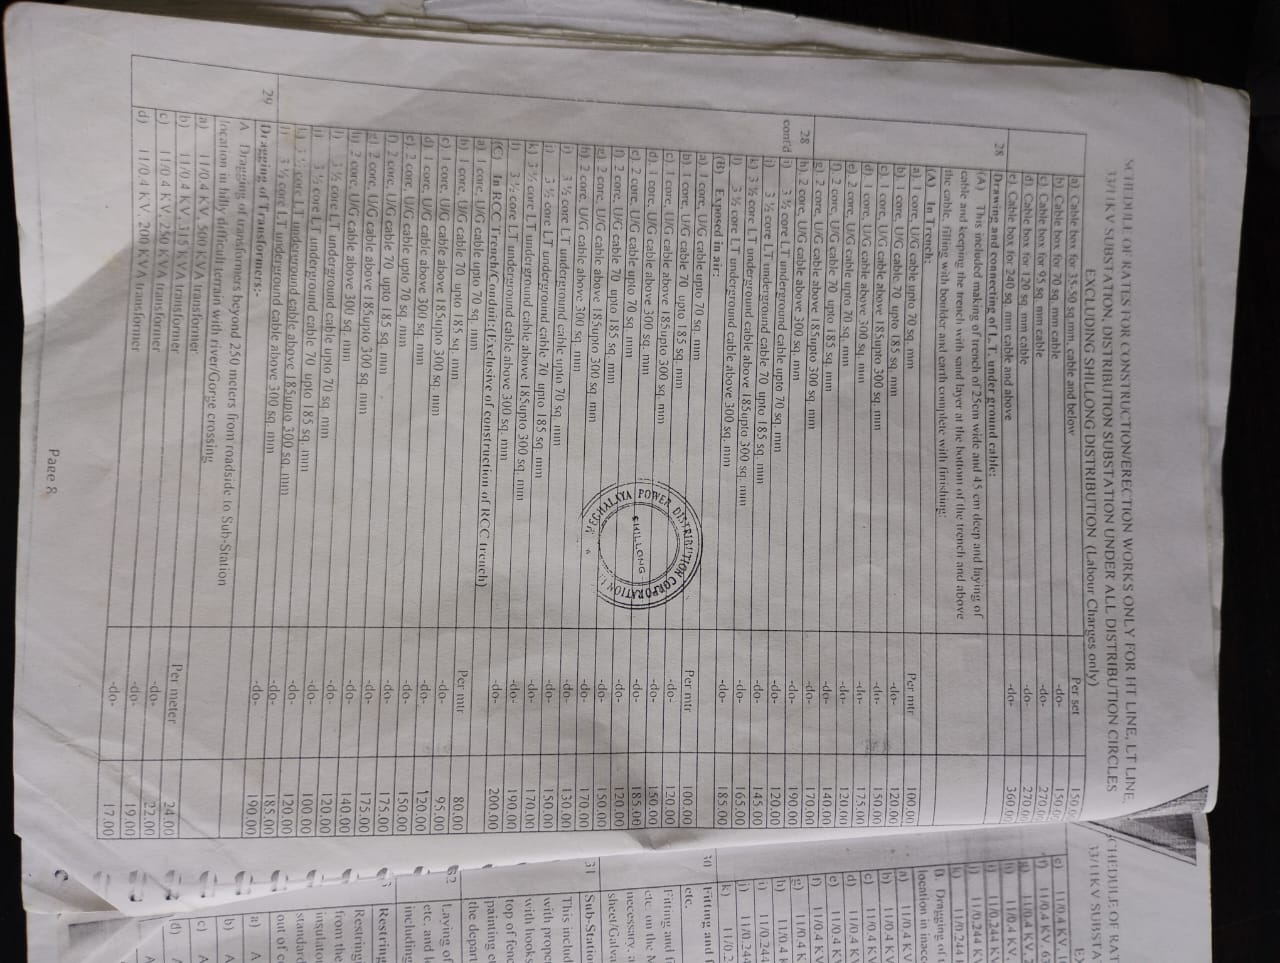 SCHEDULE OF RATES FOR CONSTRUCTION/ERECTION WORKS ONLY FOR HT LINE, LT LINE,
33/11KV SUBSTATION, DISTRIBUTION SUBSTATION UNDER ALL DISTRIBUTION CIRCLES
EXCLUDING SHILLONG DISTRIBUTION (Labour Charges only)
a) Cable box for 35-50 sq mm, cable and below Per set 150.0
b) Cable box for 70 sq. mm cable -do- 150.0
c) Cable box for 95 sq. mm cable -do- 270.0
d) Cable box for 120 sq. mm cable -do- 270.0
e) Cable box for 240 sq. mm cable and above -do- 360.00
28 Drawing and connecting of L.T. under ground cable:
(A) This included making of trench of 25cm wide and 45 cm deep and laying of
cable and keeping the trench with sand layer at the bottom of the trench and above
the cable, filling with boulder and earth complete with finishing:
(A) In Trench:
a) 1 core, U/G cable upto 70 sq. mm Per mtr 100.00
b) 1 core, U/G cable 70 upto 185 sq. mm -do- 120.00
c) 1 core, U/G cable above 185upto 300 sq. mm -do- 150.00
d) 1 core, U/G cable above 300 sq. mm -do- 175.00
e) 2 core, U/G cable upto 70 sq. mm -do- 120.00
f) 2 core, U/G cable 70 upto 185 sq. mm -do- 140.00
g) 2 core, U/G cable above 185upto 300 sq. mm -do- 170.00
28 h). 2 core, U/G cable above 300 sq. mm -do- 190.00
cont'd i) 3 ½ core LT underground cable upto 70 sq. mm -do- 120.00
j) 3 ½ core LT underground cable 70 upto 185 sq. mm -do- 145.00
k) 3 ½ core LT underground cable above 185upto 300 sq. mm -do- 165.00
l) 3 ½ core LT underground cable above 300 sq. mm -do- 185.00
(B) Exposed in air:
a) 1 core, U/G cable upto 70 sq. mm Per mtr 100.00
b) 1 core, U/G cable 70 upto 185 sq. mm -do- 120.00
c) 1 core, U/G cable above 185upto 300 sq. mm -do- 150.00
d) 1 core, U/G cable above 300 sq. mm -do- 185.00
e) 2 core, U/G cable upto 70 sq. mm -do- 120.00
f) 2 core, U/G cable 70 upto 185 sq. mm -do- 150.00
g) 2 core, U/G cable above 185upto 300 sq. mm -do- 170.00
h) 2 core, U/G cable above 300 sq. mm -do- 130.00
i) 3 ½ core LT underground cable upto 70 sq. mm -do- 150.00
j) 3 ½ core LT underground cable 70 upto 185 sq. mm -do- 170.00
k) 3 ½ core LT underground cable above 185upto 300 sq. mm -do- 190.00
l) 3 ½ core LT underground cable above 300 sq. mm -do- 200.00
(C) In RCC Trench/Conduit:(Exclusive of construction of RCC trench)
a) 1 core, U/G cable upto 70 sq. mm Per mtr 80.00
b) 1 core, U/G cable 70 upto 185 sq. mm -do- 95.00
c) 1 core, U/G cable above 185upto 300 sq. mm -do- 120.00
d) 1 core, U/G cable above 300 sq. mm -do- 150.00
e) 2 core, U/G cable upto 70 sq. mm -do- 175.00
f) 2 core, U/G cable 70 upto 185 sq. mm -do- 175.00
g) 2 core, U/G cable above 185upto 300 sq. mm -do- 140.00
h) 2 core, U/G cable above 300 sq. mm -do- 120.00
i) 3 ½ core LT underground cable upto 70 sq. mm -do- 100.00
j) 3 ½ core LT underground cable 70 upto 185 sq. mm -do- 120.00
k) 3 ½ core LT underground cable above 185upto 300 sq. mm -do- 185.00
l) 3 ½ core LT underground cable above 300 sq. mm -do- 190.00
29 Dragging of Transformers:-
A Dragging of transformers beyond 250 meters from roadside to Sub-Station
location in hilly difficult terrain with river/Gorge crossing
a) 11/0.4 KV, 500 KVA transformer Per meter 24.00
b) 11/0.4 KV, 315 KVA transformer -do- 22.00
c) 11/0.4 KV, 250 KVA transformer -do- 19.00
d) 11/0.4 KV, 200 KVA transformer -do- 17.00
MEGHALAYA POWER DISTRIBUTION CORPORATION
SHILLONG
Page 8
SCHEDULE OF RAT
33/11KV SUBSTA
e) 11/0.4 KV, 1
f) 11/0.4 KV, 63
g) 11/0.4 KV, 2
h) 11/0.4 KV,
i) 11/0.244 KV
j) 11/0.244 KV
k) 11/0.244 K
B. Dragging of t
location in inacce
a) 11/0.4 KV
b) 11/0.4 KV
c) 11/0.4 KV
d) 11/0.4 KV
e) 11/0.4 KV
f) 11/0.4 KV
g) 11/0.4 K
h) 11/0.4 K
i) 11/0.244
j) 11/0.244
k) 11/0.2
30 Fitting and f
etc.
Fitting and f
etc. on the M
necessary, a
sheet/Galva
31 Sub-Station
This includ
with prope
with hooks
top of fenc
painting e
the depart
32 Laying of
etc. and l
including
Restring
Restring
from the
insulator
standard
out of c
a) A
b) A
c) A
d) A